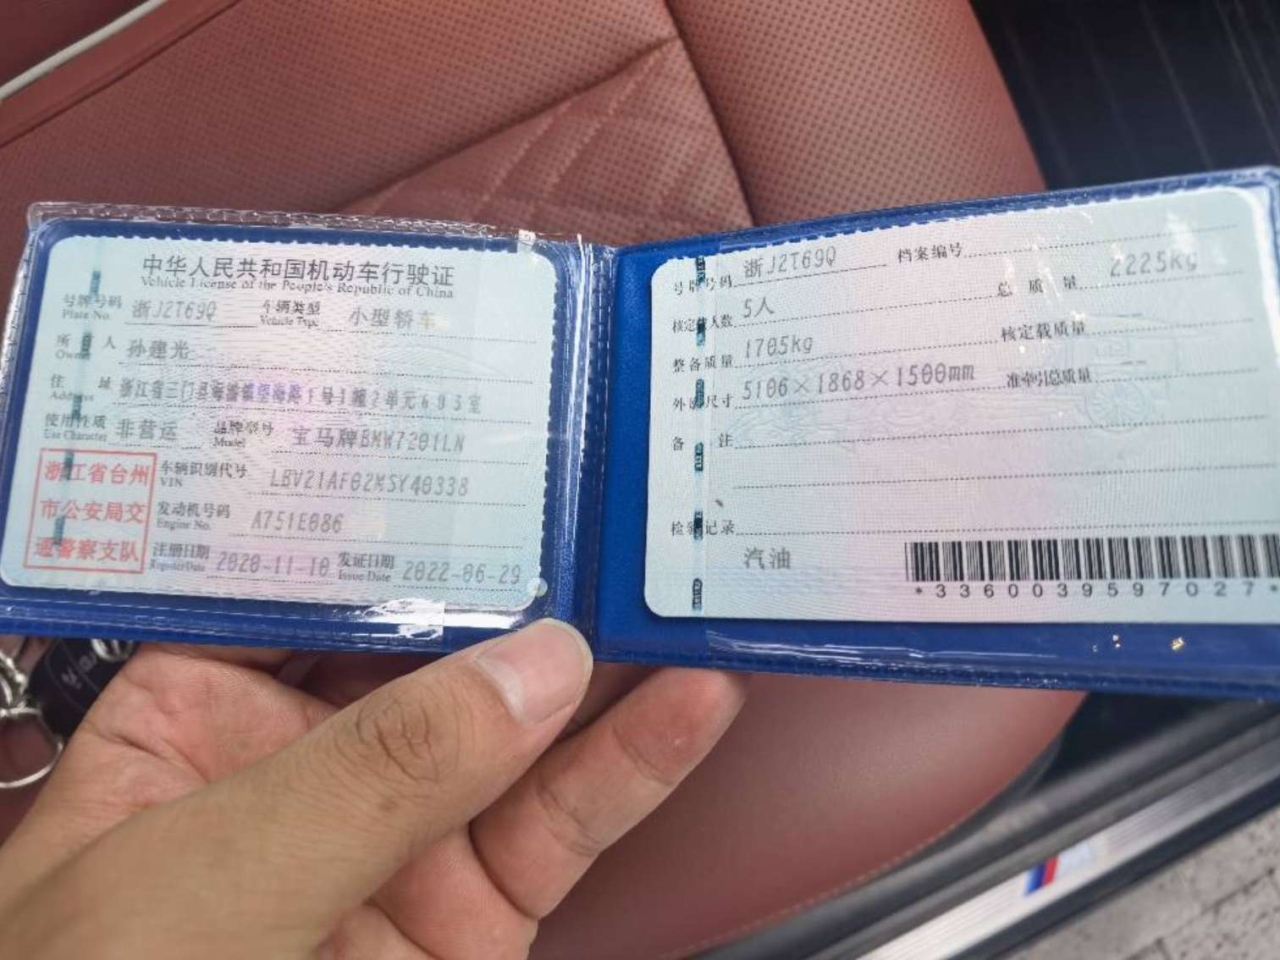 中华人民共和国机动车行驶证
Vehicle License of the People's Republic of China
号牌号码 浙J2T69Q 车辆类型 小型轿车
Plate No. Vehicle Type
所有人 孙建光
Owner
住址 浙江省三门县海游镇 海路1号1幢2单元603室
Address
使用性质 非营运 品牌型号 宝马牌BMW7201LN
Use Character Model
浙江省台州
市公安局交
通警察支队
车辆识别代号 LBV21AF02MSY40338
VIN
发动机号码 A751E086
Engine No.
注册日期 2020-11-10 发证日期 2022-06-29
Register Date Issue Date
号牌号码 浙J2T69Q 档案编号
核定载人数 5人 总质量 2225kg
整备质量 1705kg 核定载质量
外廓尺寸 5106×1868×1500mm 准牵引总质量
备注
检验记录
汽油
*3360039597027*